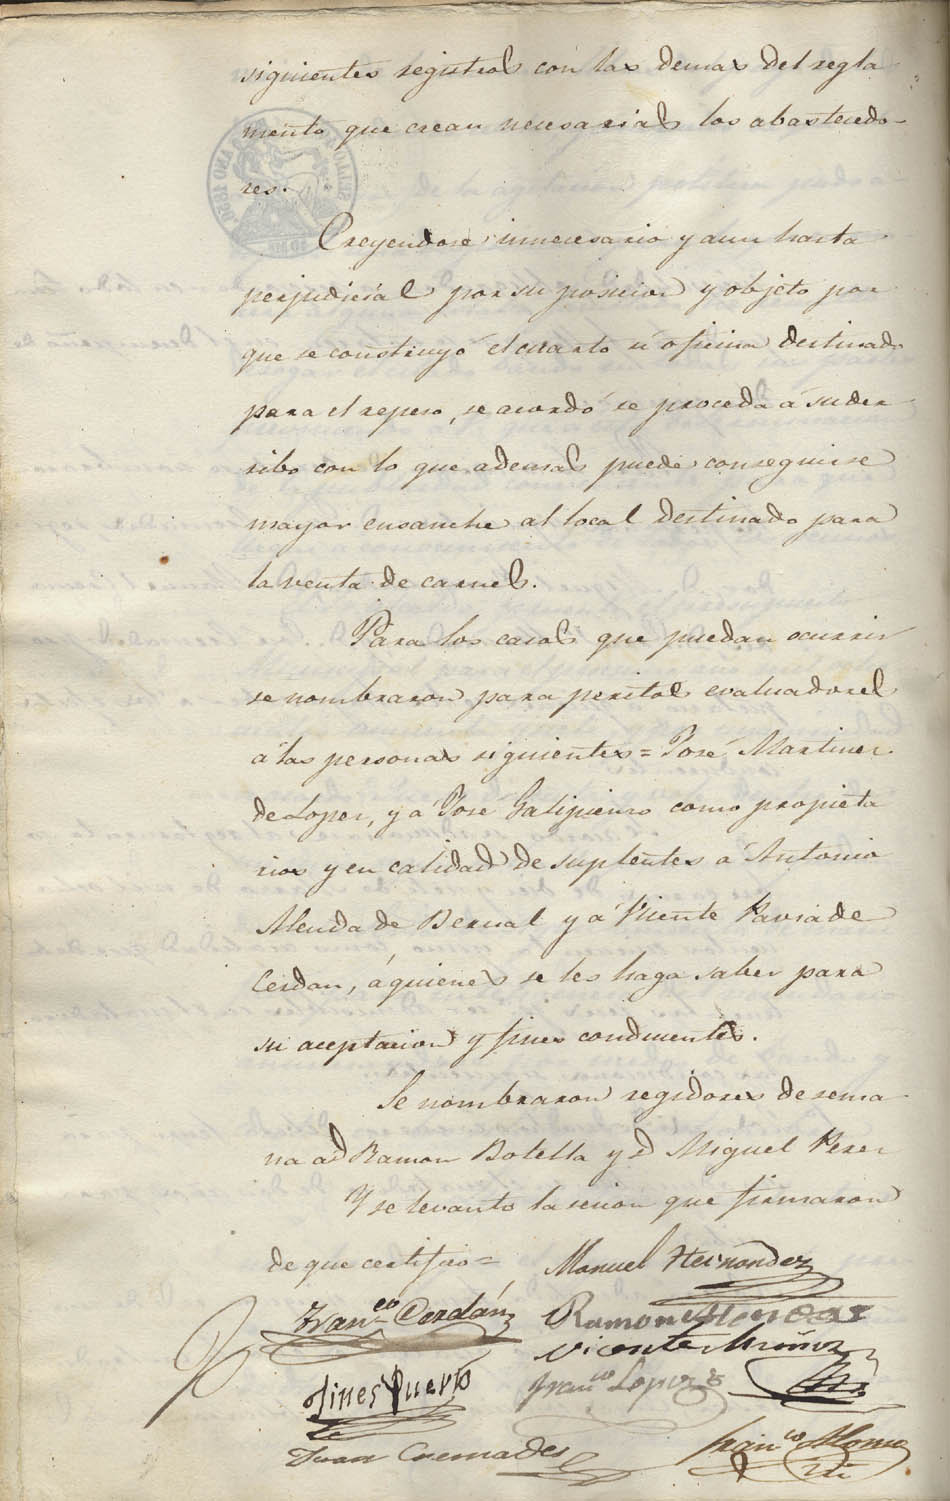 siguientes registros con las demas del regla
mento que crean necesarias los abastecedo-
res.
Creyendose innecesario y aun hasta
perjudicial por su posicion y objeto por
que se construyó el cuarto ú oficina destinado
para el repeso, se acordó se proceda á su der
ribo con lo que ademas puede conseguirse
mayor ensanche al local destinado para
la venta de carnes.
Para los casos que puedan ocurrir
se nombraron para peritos evaluadores
á las personas siguientes = José Martinez
de Lopez, y á José Galipienso como propieta
rios y en calidad de suplentes á Antonio
Alenda de Bernal y á Vicente Pavia de
Cerdan, á quienes se les haga saber para
su aceptacion y fines conducentes.
Se nombraron regidores de sema
na a D Ramon Botella y D Miguel Perez
Y se levanto la sesion que firmaron
de que certifico =
Manuel Hernandez
Fran.co Cerdán
Ramon
Vicente Muñoz
Gines Puerto
Fran.co Lopez
Juan Cremades
Fran.co Alonso